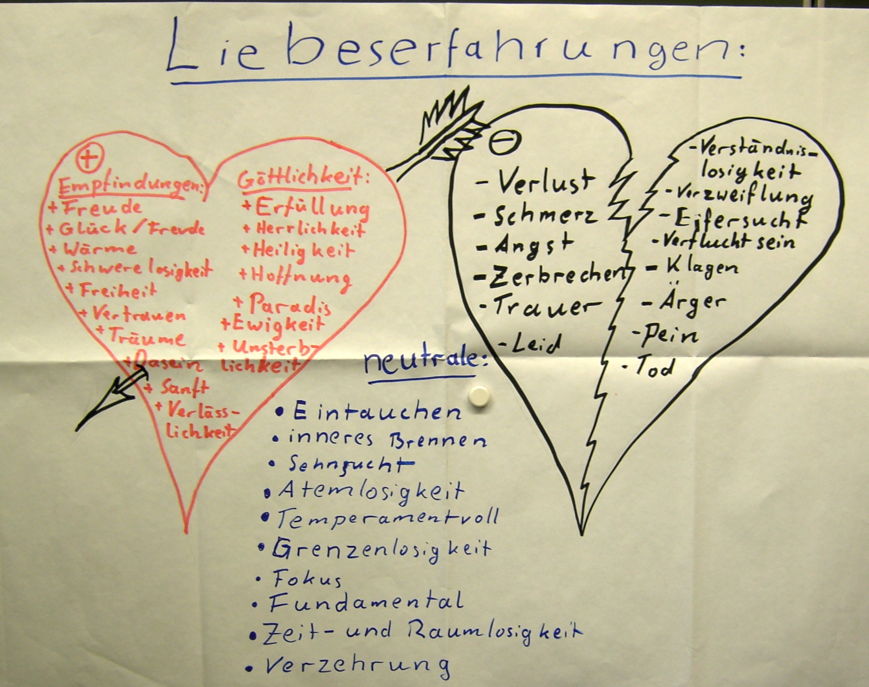 Liebeserfahrungen:
+
Empfindungen:
+ Freude
+ Glück/Freude
+ Wärme
+ Schwerelosigkeit
+ Freiheit
+ Vertrauen
+ Träume
+ Dasein
+ Sanft
+ Verläss-
lichkeit
Göttlichkeit:
+ Erfüllung
+ Herrlichkeit
+ Heiligkeit
+ Hoffnung
+ Paradis
+ Ewigkeit
+ Unsterb-
lichkeit
-
- Verlust
- Schmerz
- Angst
- Zerbrechen
- Trauer
- Leid
- Verständnis-
losigkeit
- Verzweiflung
- Eifersucht
- Verflucht sein
- Klagen
- Ärger
- Pein
- Tod
neutrale:
• Eintauchen
• inneres Brennen
• Sehnsucht
• Atemlosigkeit
• Temperamentvoll
• Grenzenlosigkeit
• Fokus
• Fundamental
• Zeit- und Raumlosigkeit
• Verzehrung